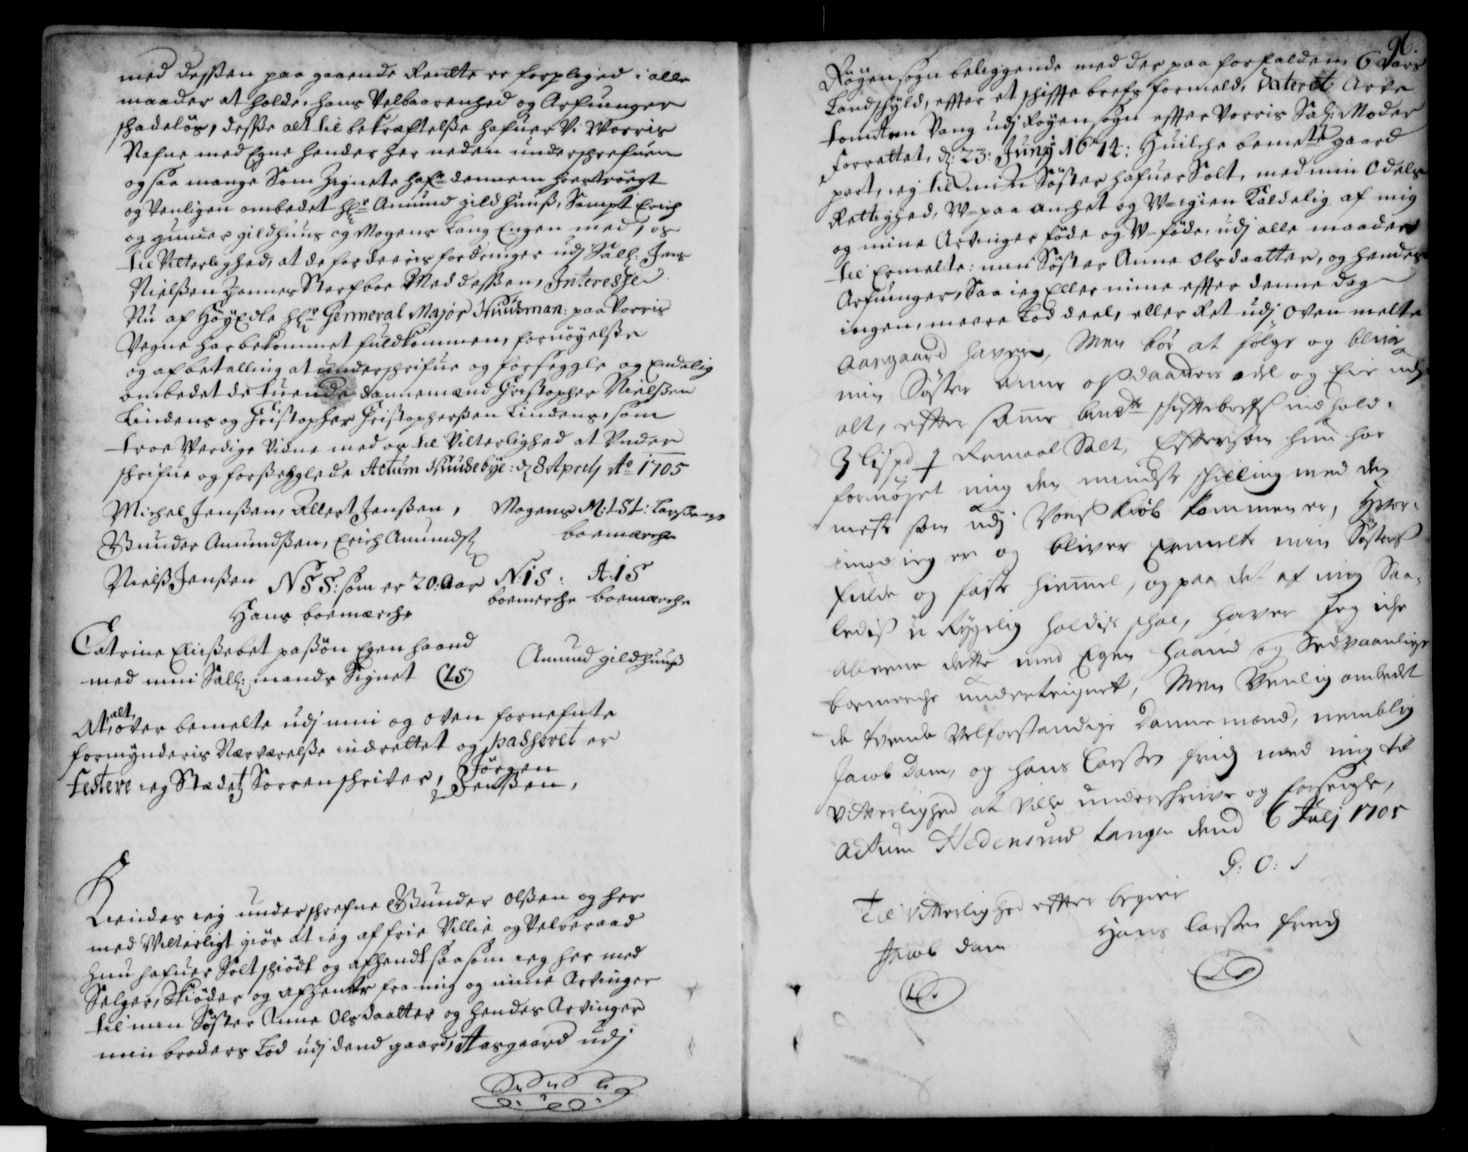 med dessen paa gaaende Rendte er forpliged i alle
maader at holde, hans Velbaarenhed og Arfvinger
schadesløs, desse alt til bekræftelse hafuer Vi Vorris
Nafne med Egne hender her neden underschrefuen
og saa mange som Zignete hafr dennem hoströgt
og Venligen ombedet hr Amund gildhuus, Sampt Erich
og gunner gildhuus og Mogens Lang Engen med os
til Vitterlighed, at de for deeris fordringer udj Sall. Jens
Nielssen Zanners Sterfboe Med dessen Interesse
Nu af HöyEdle hr General Major Huusman: paa Vorris
Vegne har bekommet fuldkommen, fornöyelse
og af betalling at underschrifue og forseggle og Endelig
ombedet de tuende dannemænd Christopher Nielssen
Lindens og Christopher Christophersen Lindens, som
troe Værdige Vidne med os til Vitterlighed at Under
schrifue og forsegglede Actum Huusebye: d 8 Aprely Ao 1705
Michel Jenssen, Allert Jenssen, Mogens M:LST: Lang Engen
boemerche
Gunder Amundssen, Erich Amunds
Niels Jenssen NSS: som er 20. Aar N:I S: A:I S
Hans boemærche boemerche boemerche
Catrine Elissebet passön Egen haand
med min Sall: mands Signet (LS) Amund gildhuus
At alt over bemelte udj min og oven fornefnte
formynderis Nærværelse indrettet og passeret er
testere ieg Stædetz Sorrenschriver, Jörgen
Jenssen,
Kiendes ieg underschrefne Gunder Olssen og her
med Vitterligt giör at ieg af frie Villie og Velberaad
huu hafuer Solt schiödt og afhendt saa som ieg her med
Selger, Skiöder og afhender fra mig og mine Arvinger
til min Söster Anne Olsdaatter og hendes Arvinger
min broders Lod udj dend gaard, Aasgaard udj
96.
Röyensogn beliggende med der paa forfalden 6 Aars
Landschyld, effter et schiffte brefs formeld, dateret Arve
tomten Vang udj Röyensogn effter Vorris Sal: Moder
forrettet, d: 23: Juny 1674: Huilche bemelte gaard
part, ieg til min Söster hafuer Solt, med min Odels
Rettighed, W-paa anchet og W-igien Kaldelig af mig
og mine Arvinger föde og W-föde, udj alle maader
til Ermelte: min Söster Anne Olsdaatter, og hendes
Arfuinger, Saa ieg Eller mine effter denne dag
ingen, meere Lod deel, eller Ret udj oven melte
Aasgaard haver, Men bör at fölge og blive
min Söster Anne Olsdaatters odel og Eie udj
alt, effter samme bemte schiftebrefs indhold.
3 lispd Salt, Eftersom hun har
fornöiet mig den mindste schilling med den
meste som udj Voris Kiöb kommen er, Hvor-
imod ieg er og bliver Ermelte min Sösters
fulde og faste hiemmel, og paa det af mig Saa-
ledis u Rygelig holdes schal, haver Jeg iche
alleene dette med Egen Haand og Sædvaanlige
boemerche undertegnet, Men Venlig ombedet
de tvende Velforstandige Dannemænd, nemblig
Jacob Dam, og Hans Larssen friis med mig til
Vitterlighed at Ville underschrive og forseigle,
actum Hedensund Langen dend 6 July 1705
G: O: S
Til Vitterlighed efter begiering
Jacob Dam Hans Larssen friis
(LS) (LS)